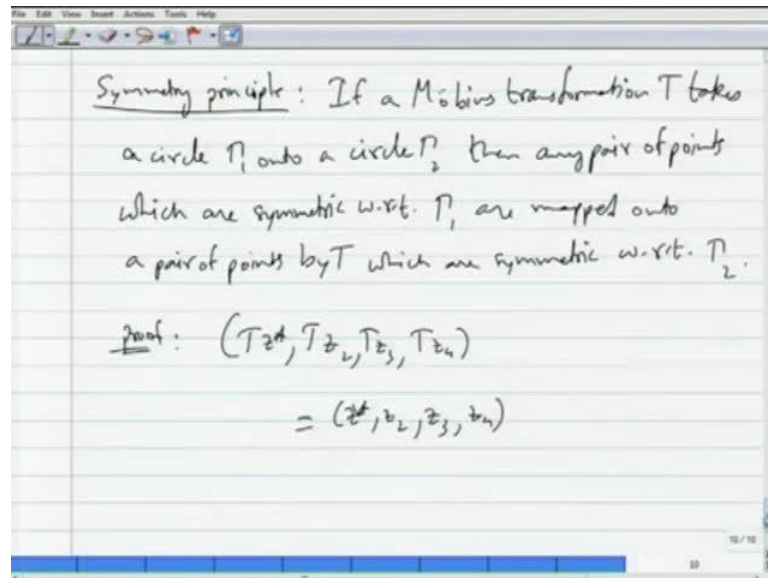 File Edit View Insert Actions Tools Help
Symmetry principle : If a Möbius transformation T takes
a circle Γ₁ onto a circle Γ₂ then any pair of points
which are symmetric w.r.t. Γ₁ are mapped onto
a pair of points by T which are symmetric w.r.t. Γ₂.
proof : (Tz*, Tz₂, Tz₃, Tz₄)
= (z*, z₂, z₃, z₄)
10/10
10